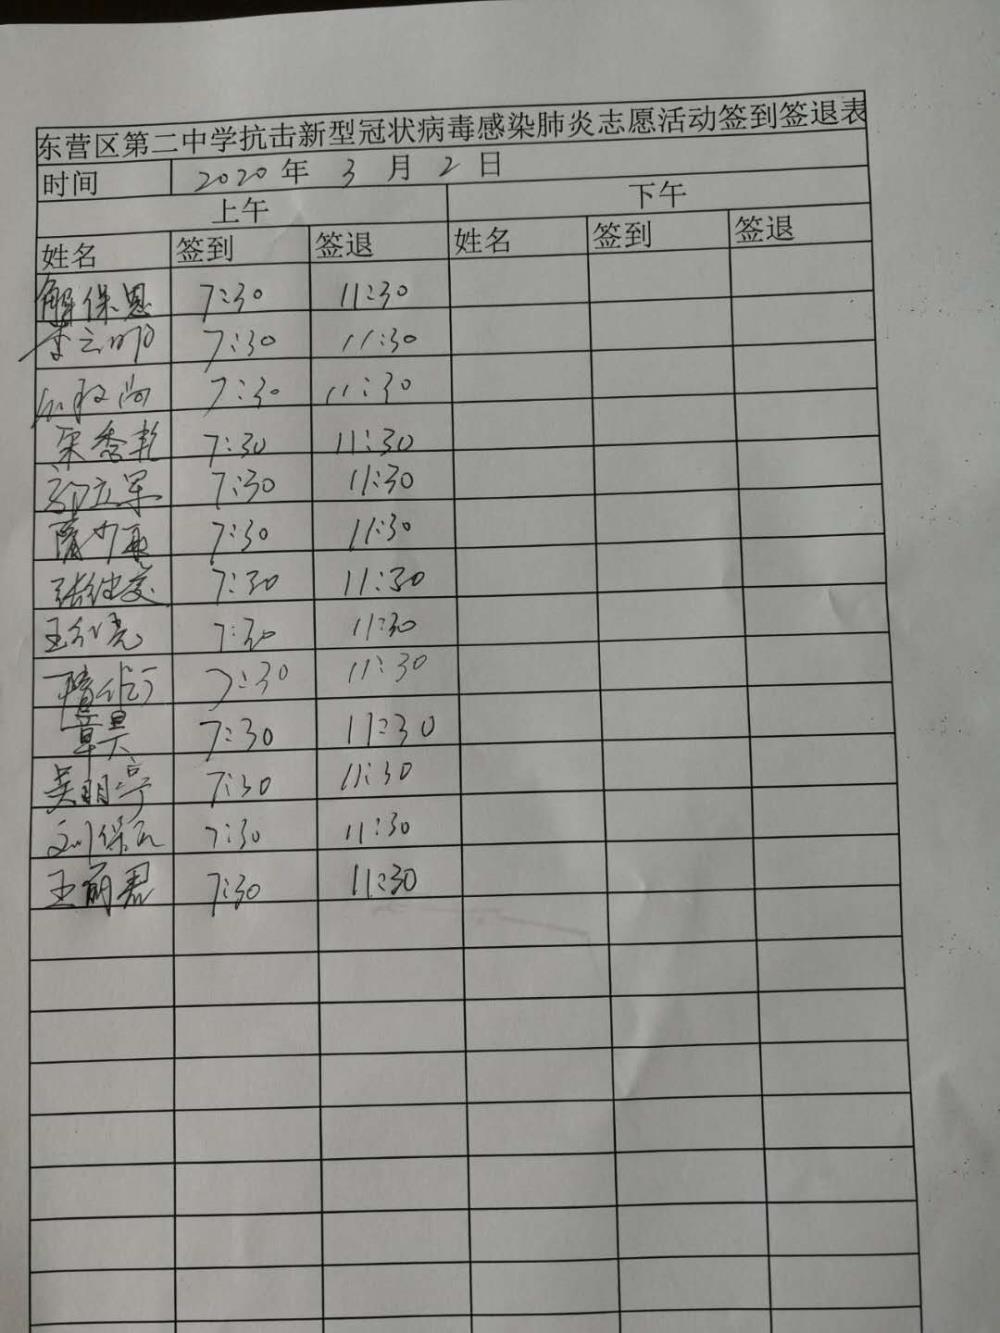 东营区第二中学抗击新型冠状病毒感染肺炎志愿活动签到签退表
时间 2020 年 3 月 2 日
上午 下午
姓名 签到 签退 姓名 签到 签退
解保恩 7:30 11:30
李云明 7:30 11:30
7:30 11:30
宋秀乾 7:30 11:30
邵立军 7:30 11:30
隋少再 7:30 11:30
张继爱 7:30 11:30
王红亮 7:30 11:30
7:30 11:30
章昊 7:30 11:30
吴明亭 7:30 11:30
刘保 7:30 11:30
王丽君 7:30 11:30